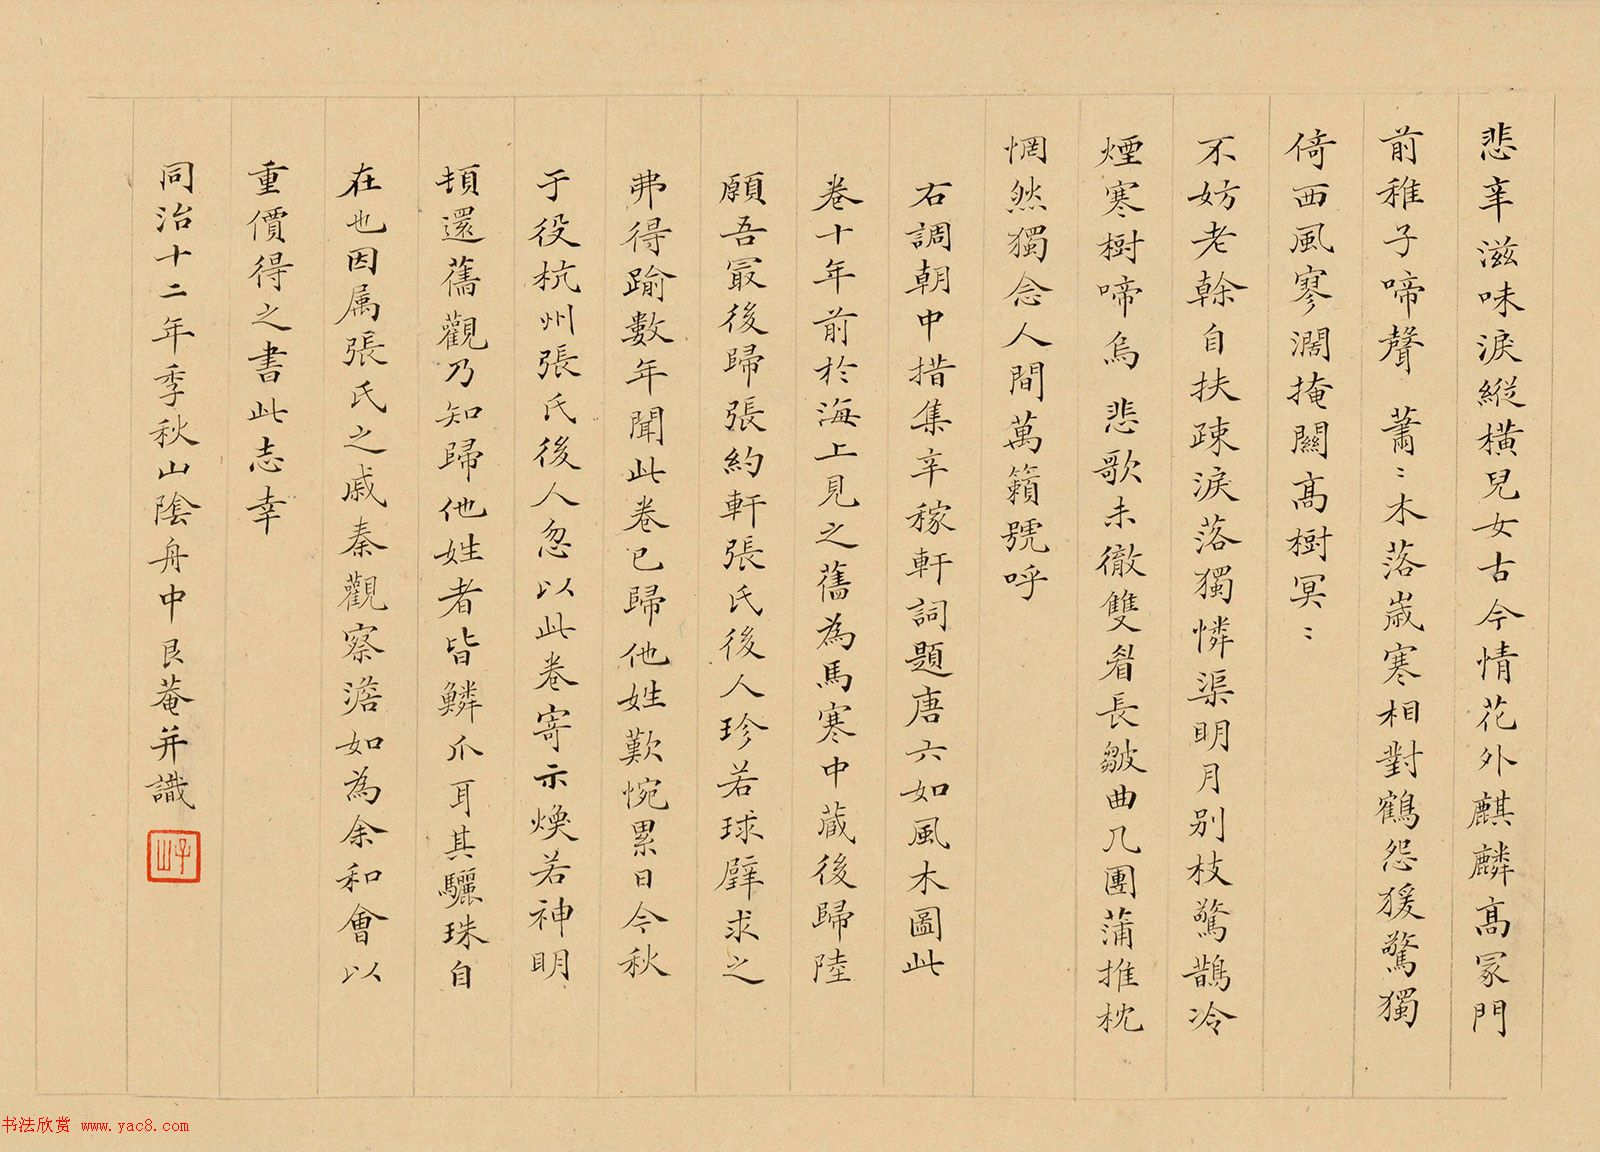 悲辛滋味淚縱橫兒女古今情花外麒麟高冢門
前稚子啼聲　蕭〻木落歲寒相對鶴怨猨驚獨
倚西風寥濶掩關高樹冥〻
不妨老榦自扶疎淚落獨憐渠明月別枝驚鵲冷
煙寒樹啼烏　悲歌未徹雙眉長皺曲几團蒲推枕
惘然獨念人間萬籟號呼
右調朝中措集辛稼軒詞題唐六如風木圖此
卷十年前於海上見之舊為馬寒中藏後歸陸
願吾冣後歸張約軒張氏後人珍若球璧求之
弗得踰數年聞此卷已歸他姓歎惋累日今秋
于役杭州張氏後人忽以此卷寄示煥若神明
頓還舊觀乃知歸他姓者皆鱗爪耳其驪珠自
在也因属張氏之戚秦觀察澹如為余和會以
重價得之書此志幸
同治十二年季秋山陰舟中艮菴并識
子山
书法欣赏 www.yac8.com